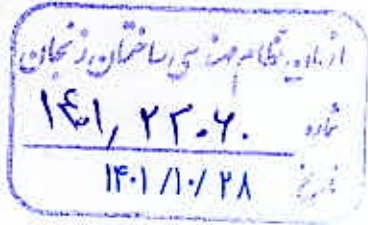 سازمان نظام مهندسی ساختمان زنجان
شماره ۱۴۰۱/۲۳۰۶۰
تاریخ ۱۴۰۱/۱۰/۲۸